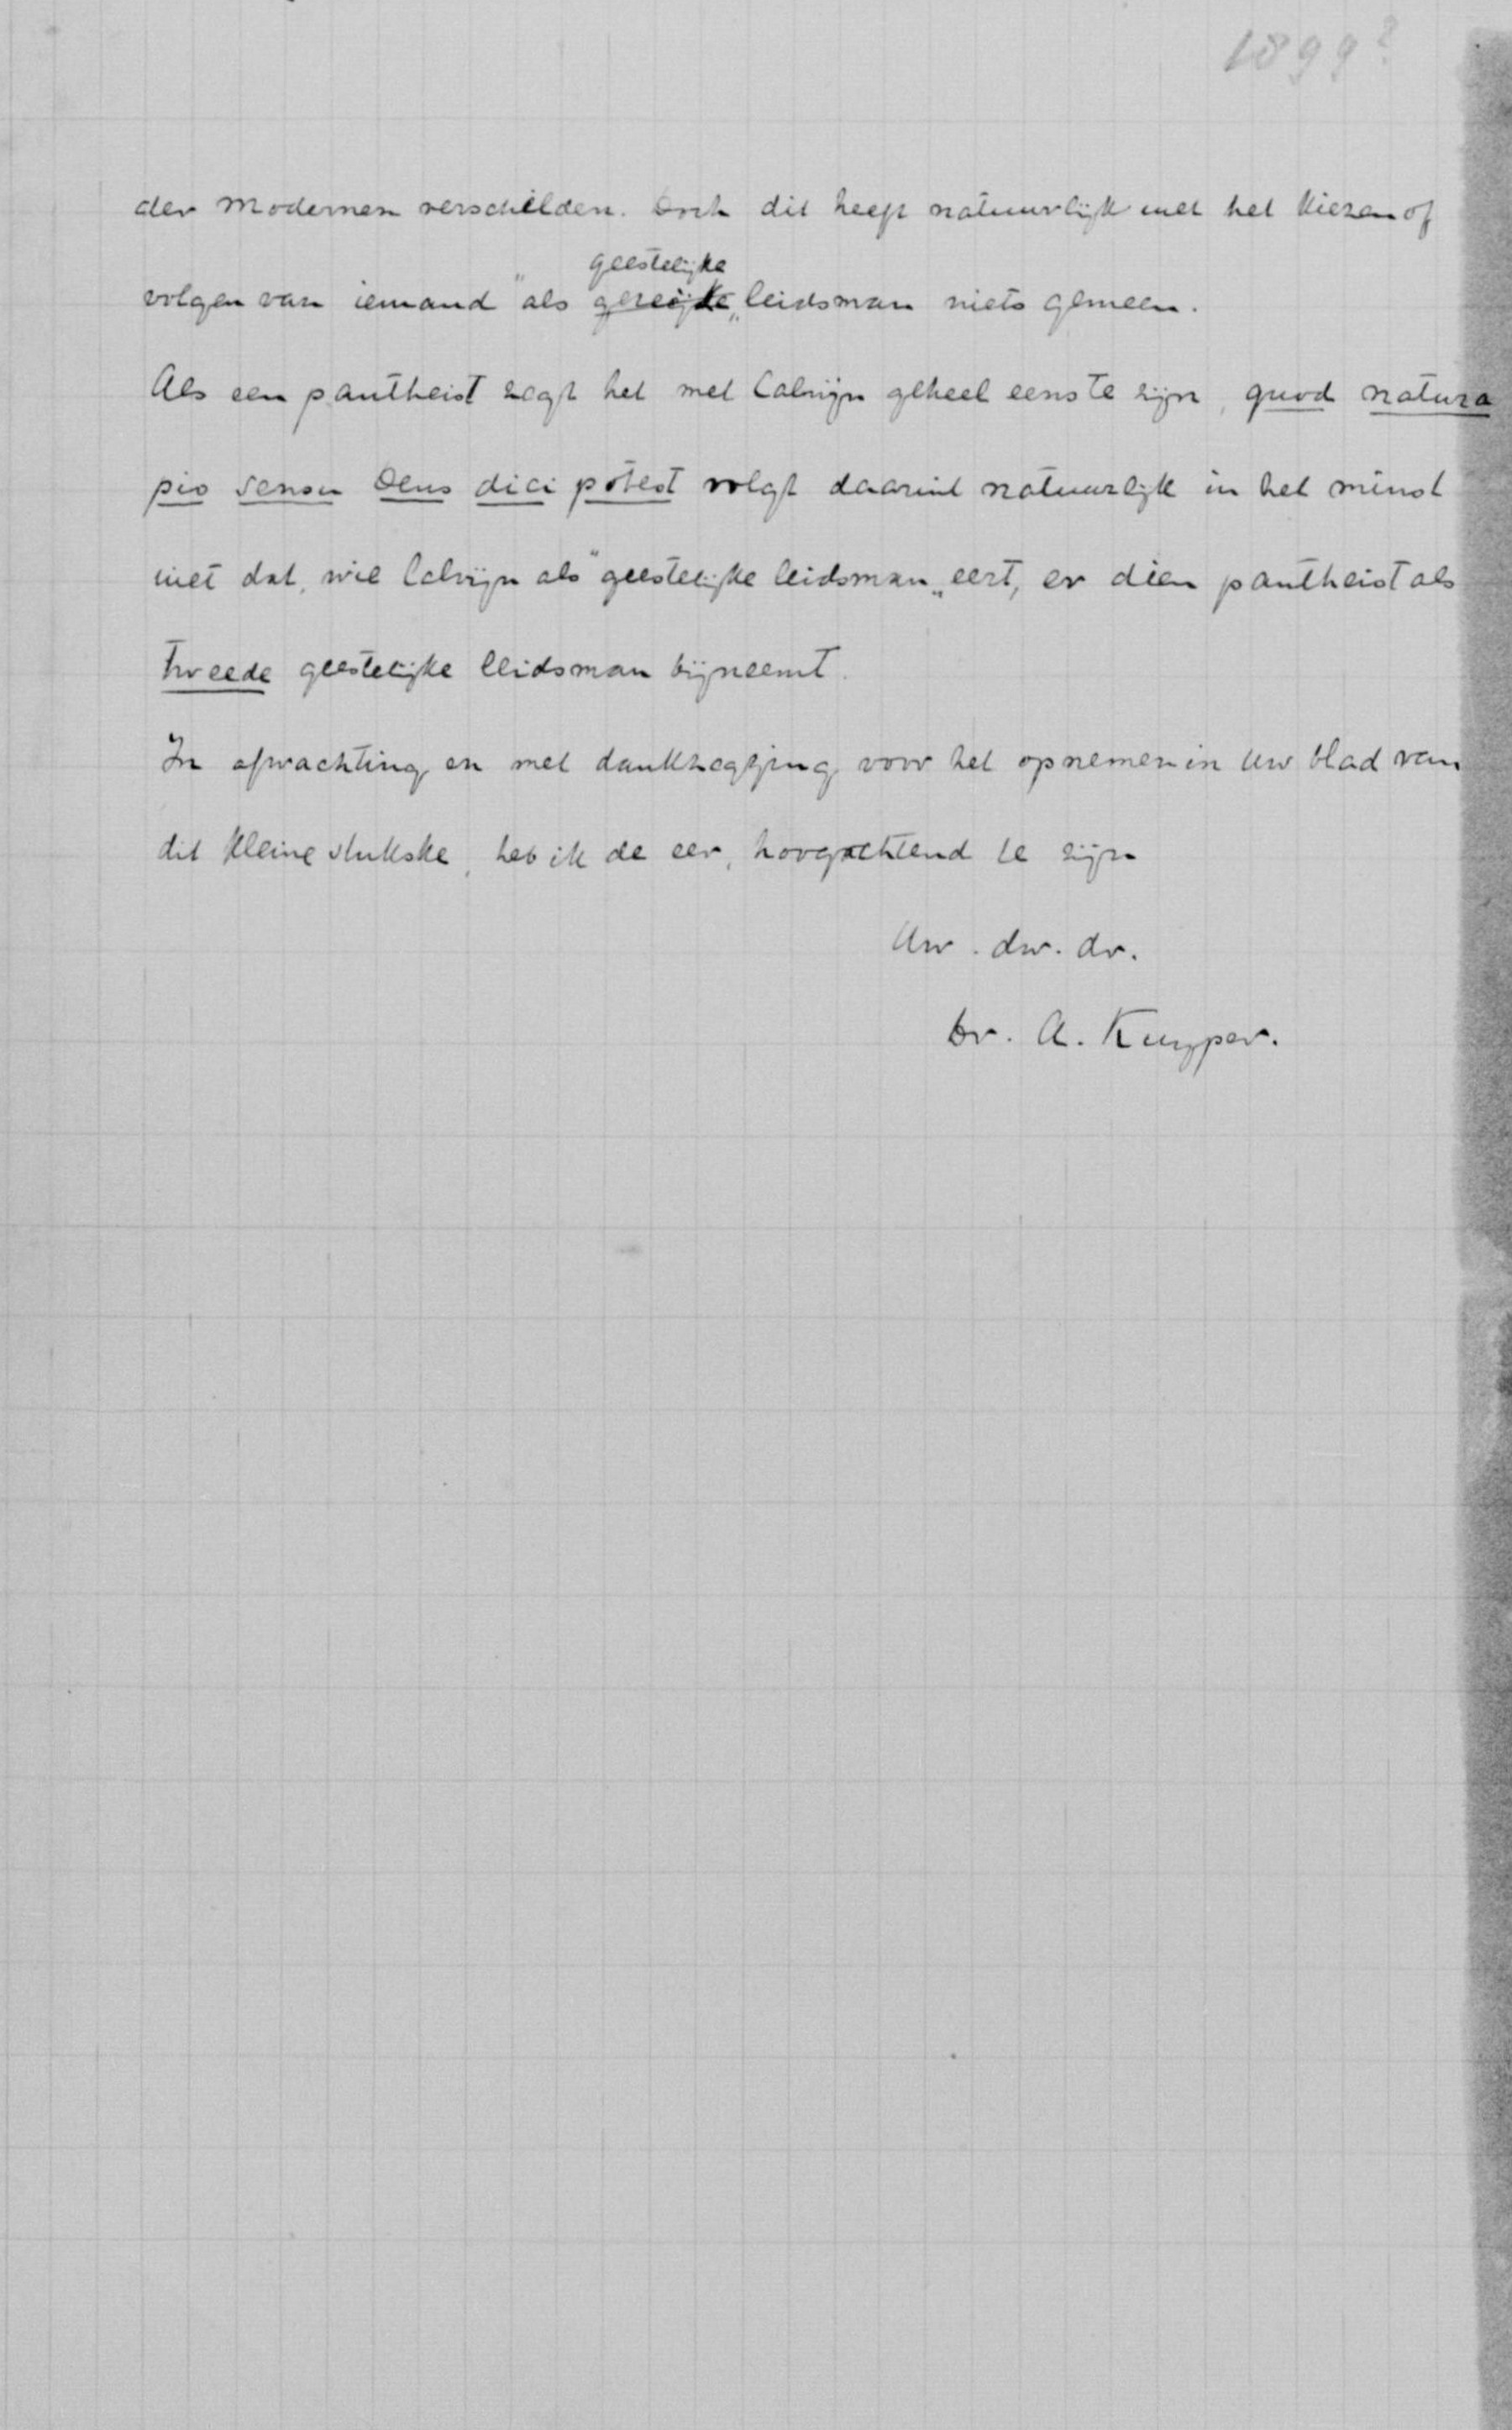 1899?
der modernen verschilden. Doch dit heeft natuurlijk met het kiezen of
geestelijke
volgen van iemand "als gereijde„ leidsman niets gemeen.
Als een pantheist zegt het met Calvijn geheel eens te zijn, quod natura
pio sensu Deus dici potest volgt daaruit natuurlijk in het minst
niet dat, wie Calvijn als "geestelijke leidsman„ eert, er dien pantheist als
tweede geestelijke leidsman bijneemt.
In afwachting en met dankzegging voor het opnemen in Uw blad van
dit kleine stukske, heb ik de eer, hoogachtend te zijn
Uw. dw. dr.
Dr. A. Kuyper.